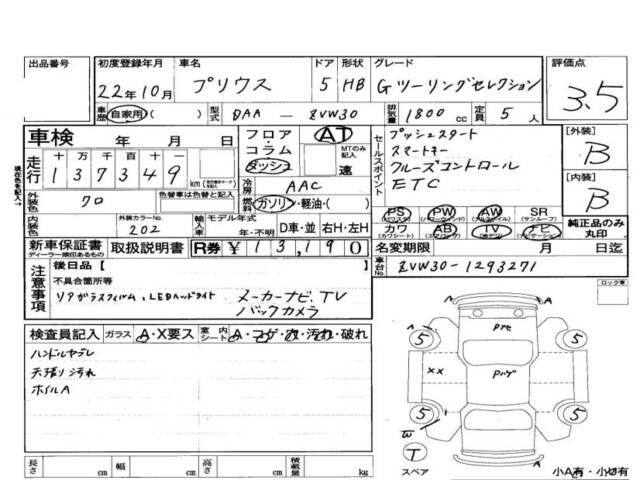 出品番号
初度登録年月 車名 ドア 形状 グレード 評価点
22年10月 プリウス 5 HB Gツーリングセレクション 3.5
車歴 自家用( ) 型式 DAA - ZVW30 排気量 1800 cc 定員 5人
車検 年 月 日
フロア・コラム ダッシュ AT MTのみ記入 速
セールスポイント プッシュスタート
スマートキー
クルーズコントロール
ETC
[外装] B
[内装] B
走行 十 万 千 百 十 一
137349 km
冷房 AAC
外装色 色替車は色替と記入
70
燃料 ガソリン・軽油・( )
PS PW AW SR(サンルーフ)
カワ(カワシート) AB TV ナビ
純正品のみ丸印
内装色 外装カラーNo. 202
輸入車 モデル年式 年・不明 D車・並 右H・左H
新車保証書 取扱説明書 R券 ¥13,190
ディーラー捺印あるもの
名変期限 月 日迄
現在色を記入→
車台No. ZVW30-1293271
注意事項 後日品【 】
不具合箇所等
リアガラスフィルム、LEDヘッドライト メーカーナビ、TV
バックカメラ
ロック車
検査員記入 ガラス A・X要ス 室内シート A・コゲ・穴・汚れ・破れ
ハンドルヤブレ
天張り汚れ
ホイルA
A
5
5
XX
5
5
W
T
スペア
小A有・小キズ有
長さ cm 幅 cm 高さ cm 積載量 kg